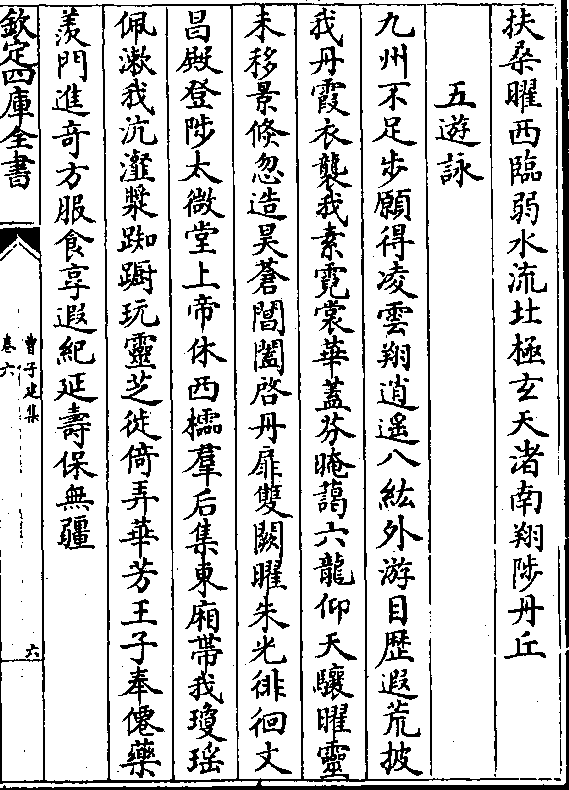 扶桑曜西臨弱水流北極玄天渚南翔陟丹丘
五遊詠
九州不足步願得凌雲翔逍遙八紘外游目歷遐荒披
我丹霞衣襲我素霓裳華蓋芬晻藹六龍仰天驤曜靈
未移景倐忽造昊蒼閶闔啓丹扉雙闕曜朱光徘徊文
昌殿登陟太微堂上帝休西櫺羣后集東廂帶我瓊瑶
佩漱我沆瀣漿踟蹰玩靈芝徙倚弄華芳王子奉僊藥
羨門進奇方服食享遐紀延壽保無疆
欽定四庫全書
曹子建集
卷六
六